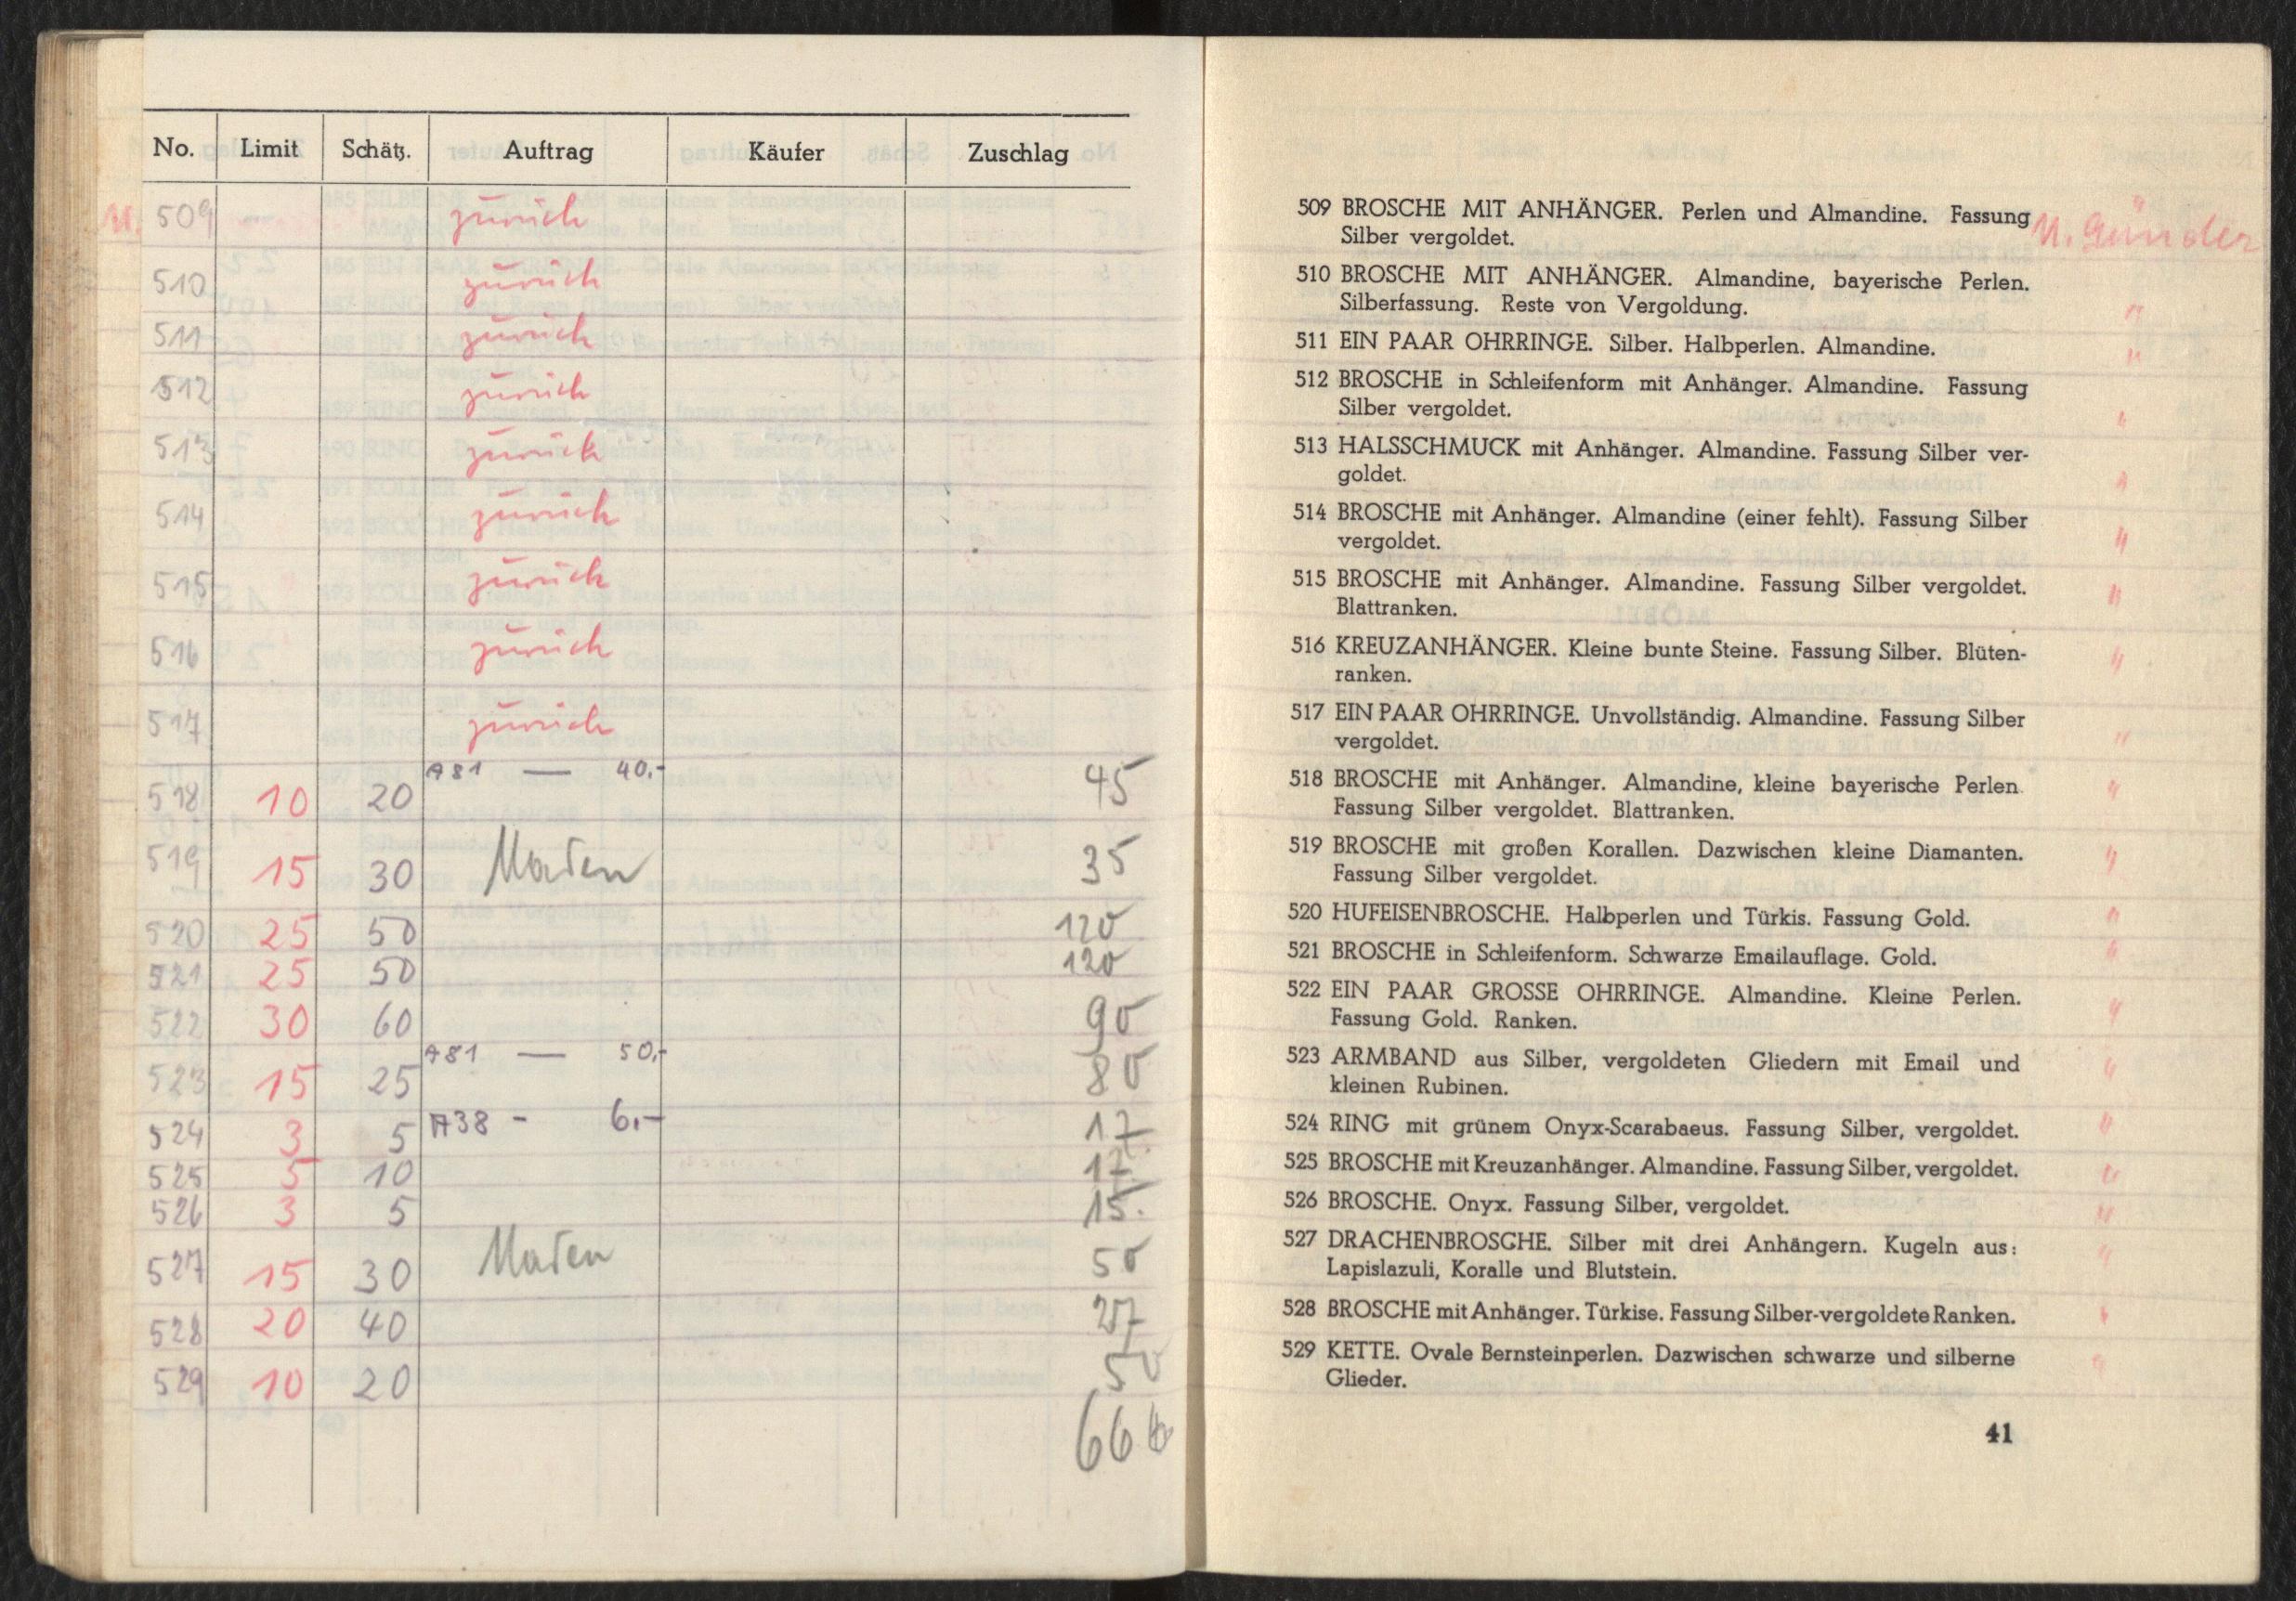 No. Limit Schätz. Auftrag Käufer Zuschlag
509 zurück
510 zurück
511 zurück
512 zurück
513 zurück
514 zurück
515 zurück
516 zurück
517 zurück
A81 — 40.-
518 10 20 45
519 15 30 35
520 25 50 120
521 25 50 120
522 30 60 90
A81 — 50.-
523 15 25 80
524 3 5 A38 - 6.- 17
525 5 10 17.
526 3 5 15.
527 15 30 50
528 20 40 27
529 10 20 50
666
509 BROSCHE MIT ANHÄNGER. Perlen und Almandine. Fassung
Silber vergoldet.
510 BROSCHE MIT ANHÄNGER. Almandine, bayerische Perlen.
Silberfassung. Reste von Vergoldung. "
511 EIN PAAR OHRRINGE. Silber. Halbperlen. Almandine. "
512 BROSCHE in Schleifenform mit Anhänger. Almandine. Fassung
Silber vergoldet. "
513 HALSSCHMUCK mit Anhänger. Almandine. Fassung Silber ver-
goldet. "
514 BROSCHE mit Anhänger. Almandine (einer fehlt). Fassung Silber
vergoldet. "
515 BROSCHE mit Anhänger. Almandine. Fassung Silber vergoldet.
Blattranken. "
516 KREUZANHÄNGER. Kleine bunte Steine. Fassung Silber. Blüten-
ranken. "
517 EIN PAAR OHRRINGE. Unvollständig. Almandine. Fassung Silber
vergoldet. "
518 BROSCHE mit Anhänger. Almandine, kleine bayerische Perlen
Fassung Silber vergoldet. Blattranken. "
519 BROSCHE mit großen Korallen. Dazwischen kleine Diamanten.
Fassung Silber vergoldet. "
520 HUFEISENBROSCHE. Halbperlen und Türkis. Fassung Gold. "
521 BROSCHE in Schleifenform. Schwarze Emailauflage. Gold. "
522 EIN PAAR GROSSE OHRRINGE. Almandine. Kleine Perlen.
Fassung Gold. Ranken. "
523 ARMBAND aus Silber, vergoldeten Gliedern mit Email und
kleinen Rubinen. "
524 RING mit grünem Onyx-Scarabaeus. Fassung Silber, vergoldet. "
525 BROSCHE mit Kreuzanhänger. Almandine. Fassung Silber, vergoldet. "
526 BROSCHE. Onyx. Fassung Silber, vergoldet. "
527 DRACHENBROSCHE. Silber mit drei Anhängern. Kugeln aus:
Lapislazuli, Koralle und Blutstein. "
528 BROSCHE mit Anhänger. Türkise. Fassung Silber-vergoldete Ranken. "
529 KETTE. Ovale Bernsteinperlen. Dazwischen schwarze und silberne
Glieder. "
41